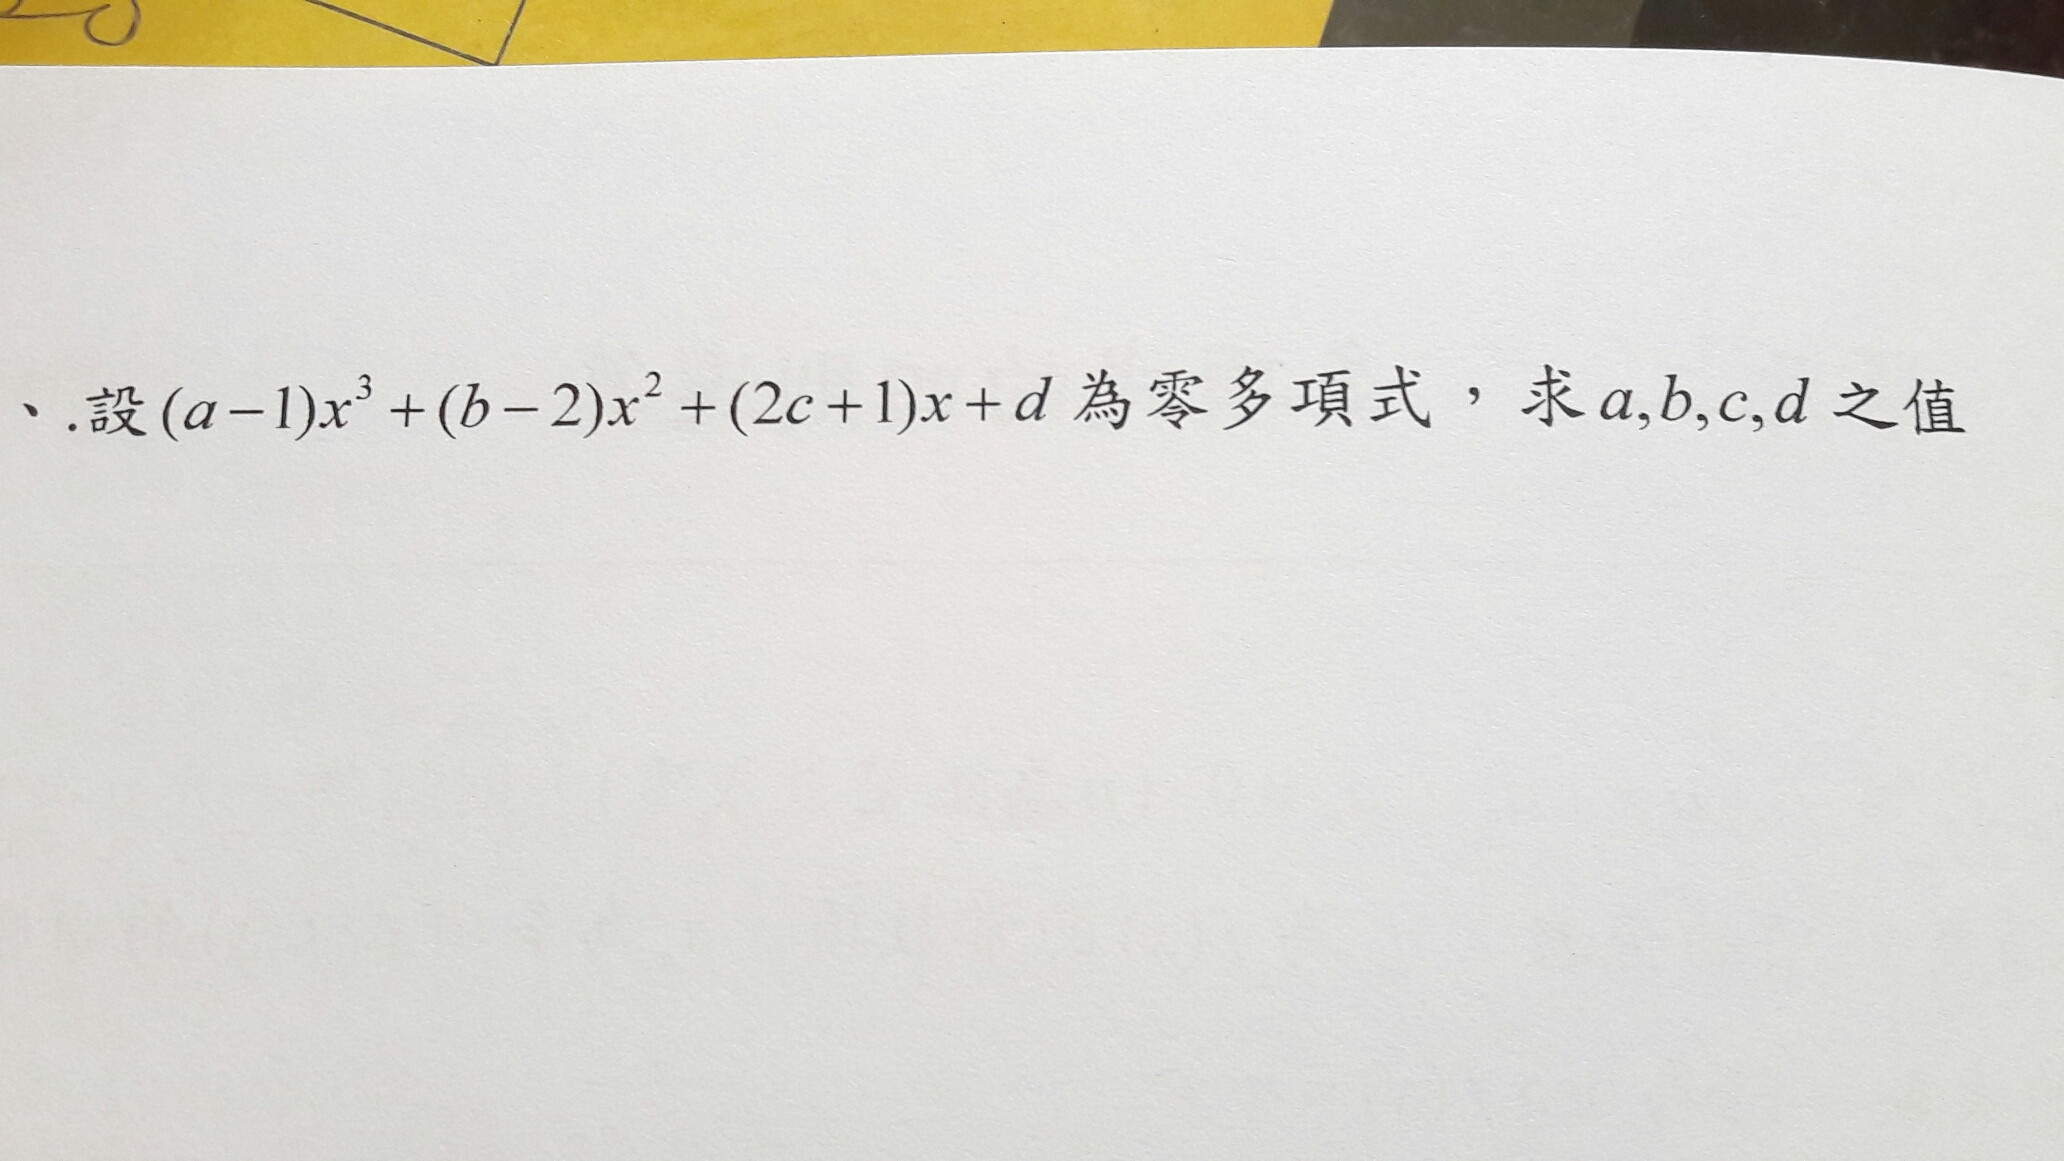 、.設(a-1)x³+(b-2)x²+(2c+1)x+d 為零多項式，求a,b,c,d之值